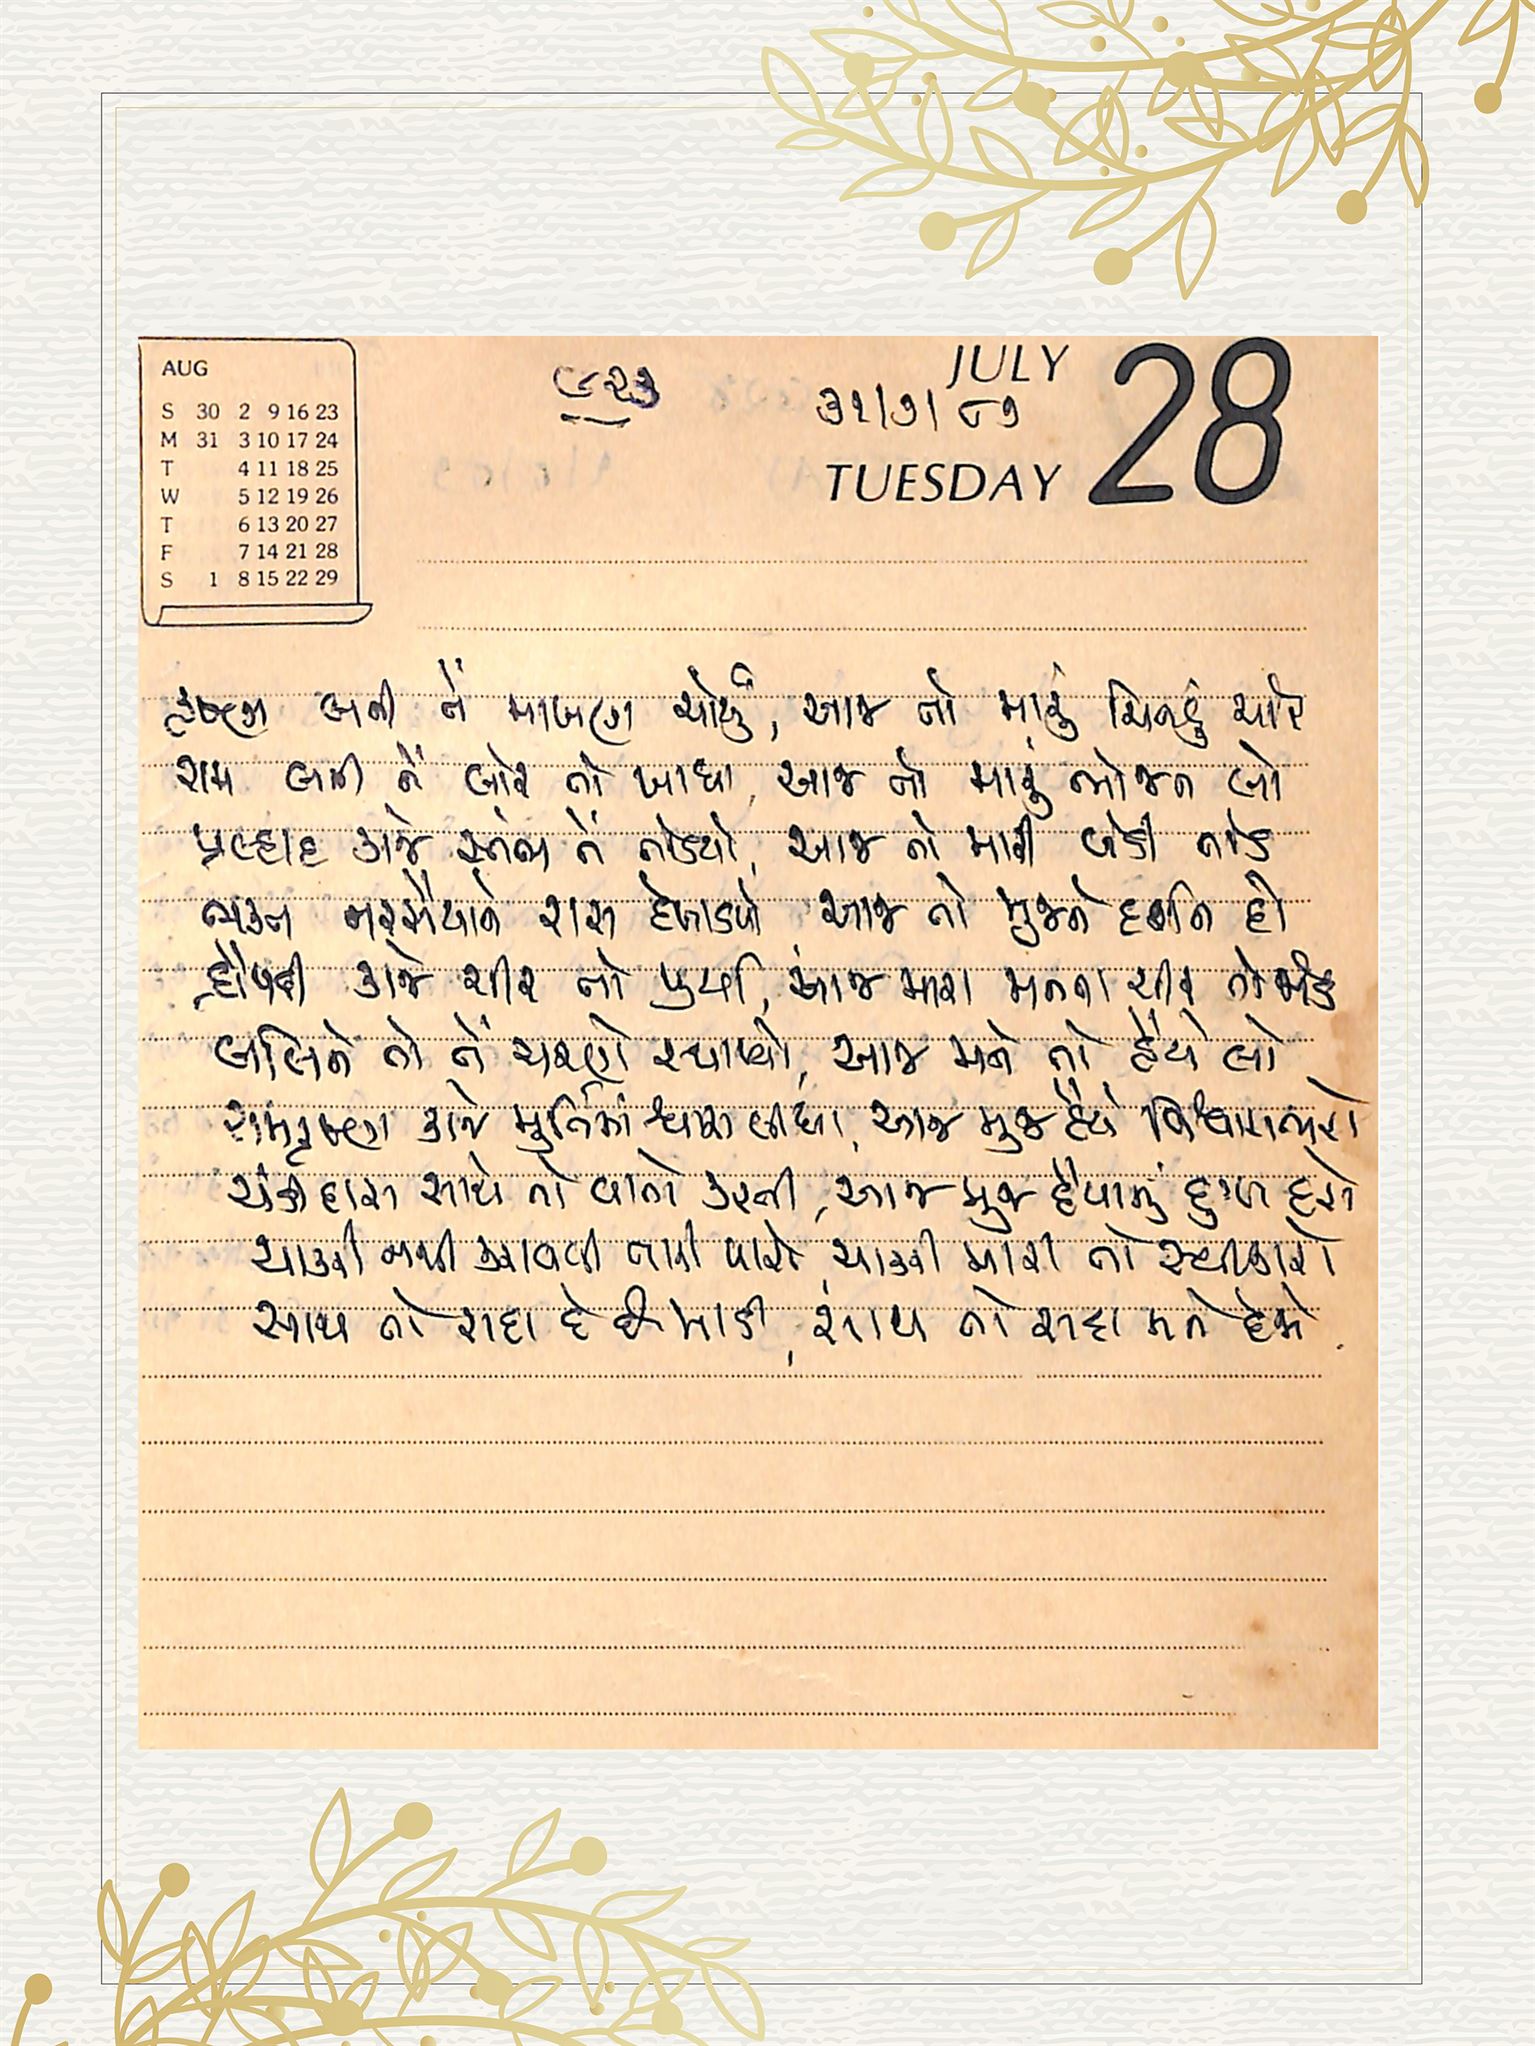 AUG
S 30 2 9 16 23
M 31 3 10 17 24
T 4 11 18 25
W 5 12 19 26
T 6 13 20 27
F 7 14 21 28
S 1 8 15 22 29
JULY 28
૩૧/૭/૮૭
TUESDAY
કૃષ્ણ બની તેં માખણ ચોર્યું, આજ તો મારું ચિત્તડું ચોરે
રામ બની તેં બોર તો ખાધા, આજ તો મારું ભોજન લો
પ્રહ્લાદ કાજે સ્તંભ તેં તોડ્યો, આજ તો મારી બેડી તોડ
ભક્ત નરસૈયાને રાસ દેખાડ્યો આજ તો મુજને દર્શન દો
દ્રૌપદી કાજે ચીર તો પુર્યા, આજ મારા મનના ચીર તો
બલિને તો તેં ચરણે સ્થાપ્યો, આજ મને તો હૈયે લો
રામકૃષ્ણ કાજે મુર્તિમાં શ્વાસ લીધા, આજ મુજ હૈયે વિશ્વાસ ભરો
સાથે તો વાતો કરતી, આજ મુજ હૈયાનું દુઃખ હરો
ચાકરી નથી આવડતી તારી મારી તો સ્વીકારો
સાથ તો સદા દે છે માડી, સાથ તો સદા મને દેજો.